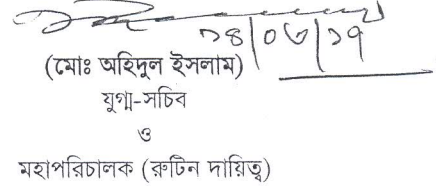 ১৪/০৬/১৭
(মোঃ অহিদুল ইসলাম)
যুগ্ম-সচিব
ও
মহাপরিচালক (রুটিন দায়িত্ব)